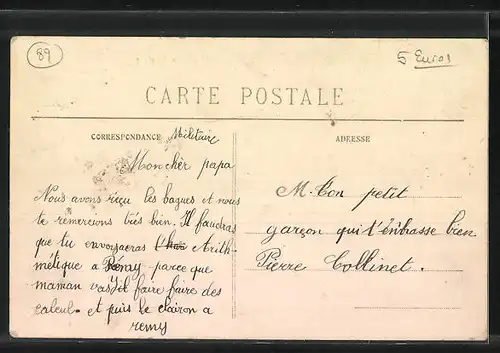 89
5 Euros
CARTE POSTALE
CORRESPONDANCE Militaire
ADRESSE
Mon chèr papa
Nous avons rèçu les bagues et nous
te remercions très bien. Il faudras
que tu envoyaeras Arith-
métique a Rémy parce que
maman vas faire faire des
calcul. et puis le clairon a
remy
M. Ton petit
garçon qui t'enbrasse bien
Pierre Collinet.